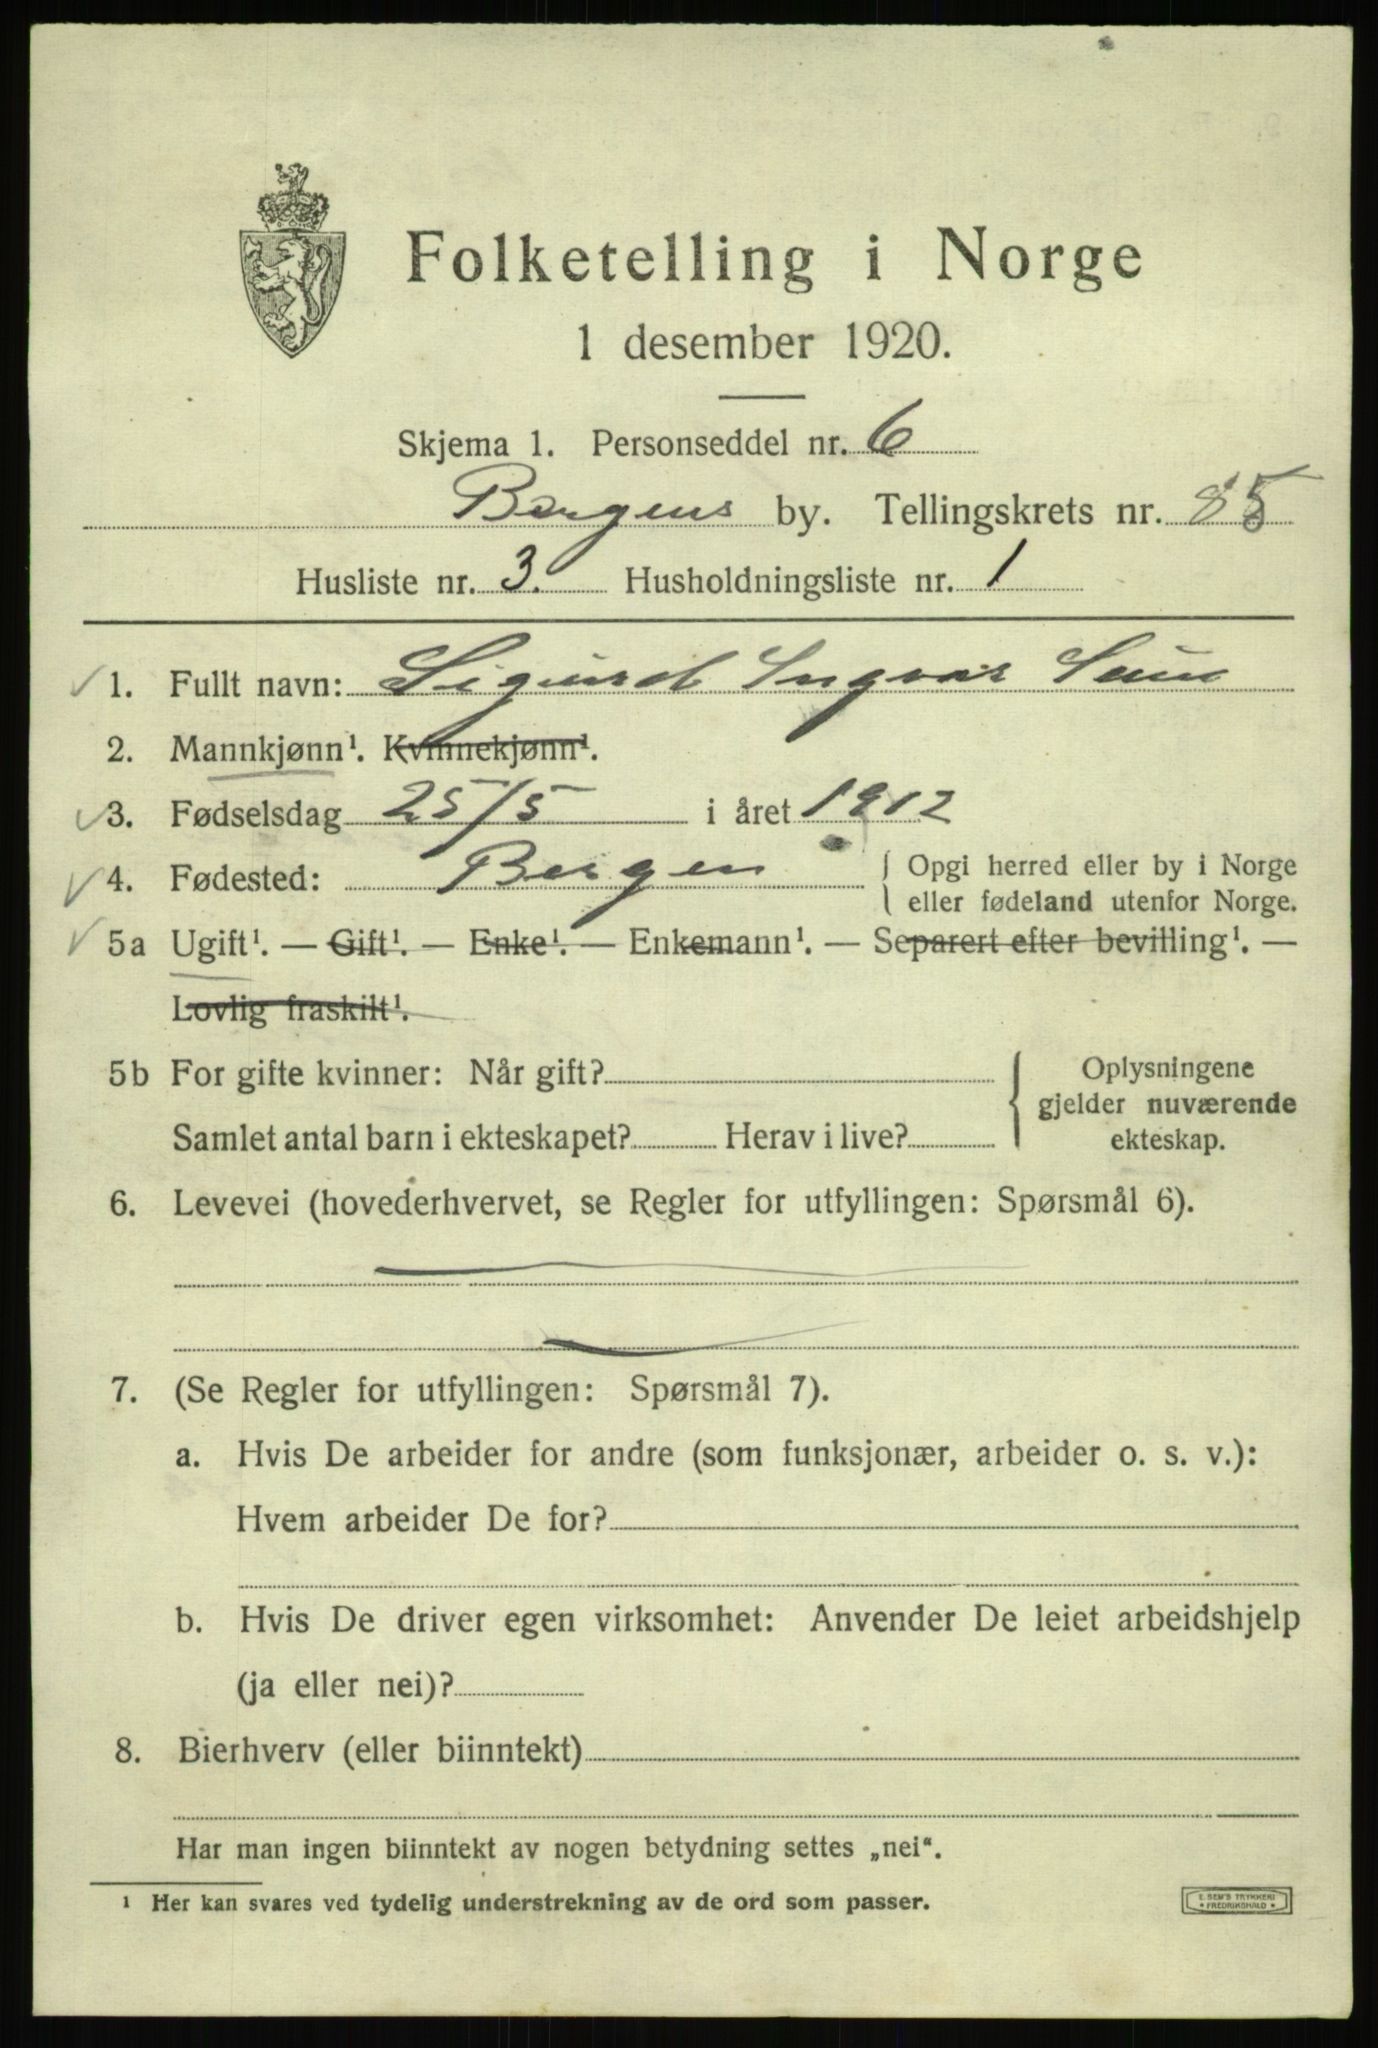 Folketelling i Norge
1 desember 1920.
Skjema 1. Personseddel nr. 6
Bergens by. Tellingskrets nr. 85
Husliste nr. 3. Husholdningsliste nr. 1
1. Fullt navn: Sigurd Ingvar
2. Mannkjønn¹. Kvinnekjønn¹.
3. Fødselsdag 25/5 i året 1912
4. Fødested: Bergen { Opgi herred eller by i Norge
eller fødeland utenfor Norge.
5a Ugift¹. — Gift¹. — Enke¹. — Enkemann¹. — Separert efter bevilling¹. —
Lovlig fraskilt¹.
5b For gifte kvinner: Når gift?
Samlet antal barn i ekteskapet? Herav i live?
{ Oplysningene
gjelder nuværende
ekteskap.
6. Levevei (hovederhvervet, se Regler for utfyllingen: Spørsmål 6).
7. (Se Regler for utfyllingen: Spørsmål 7).
a. Hvis De arbeider for andre (som funksjonær, arbeider o. s. v.):
Hvem arbeider De for?
b. Hvis De driver egen virksomhet: Anvender De leiet arbeidshjelp
(ja eller nei)?
8. Bierhverv (eller biinntekt)
Har man ingen biinntekt av nogen betydning settes „nei“.
¹ Her kan svares ved tydelig understrekning av de ord som passer.
E. SEM'S TRYKKERI
* FREDRIKSHALD *